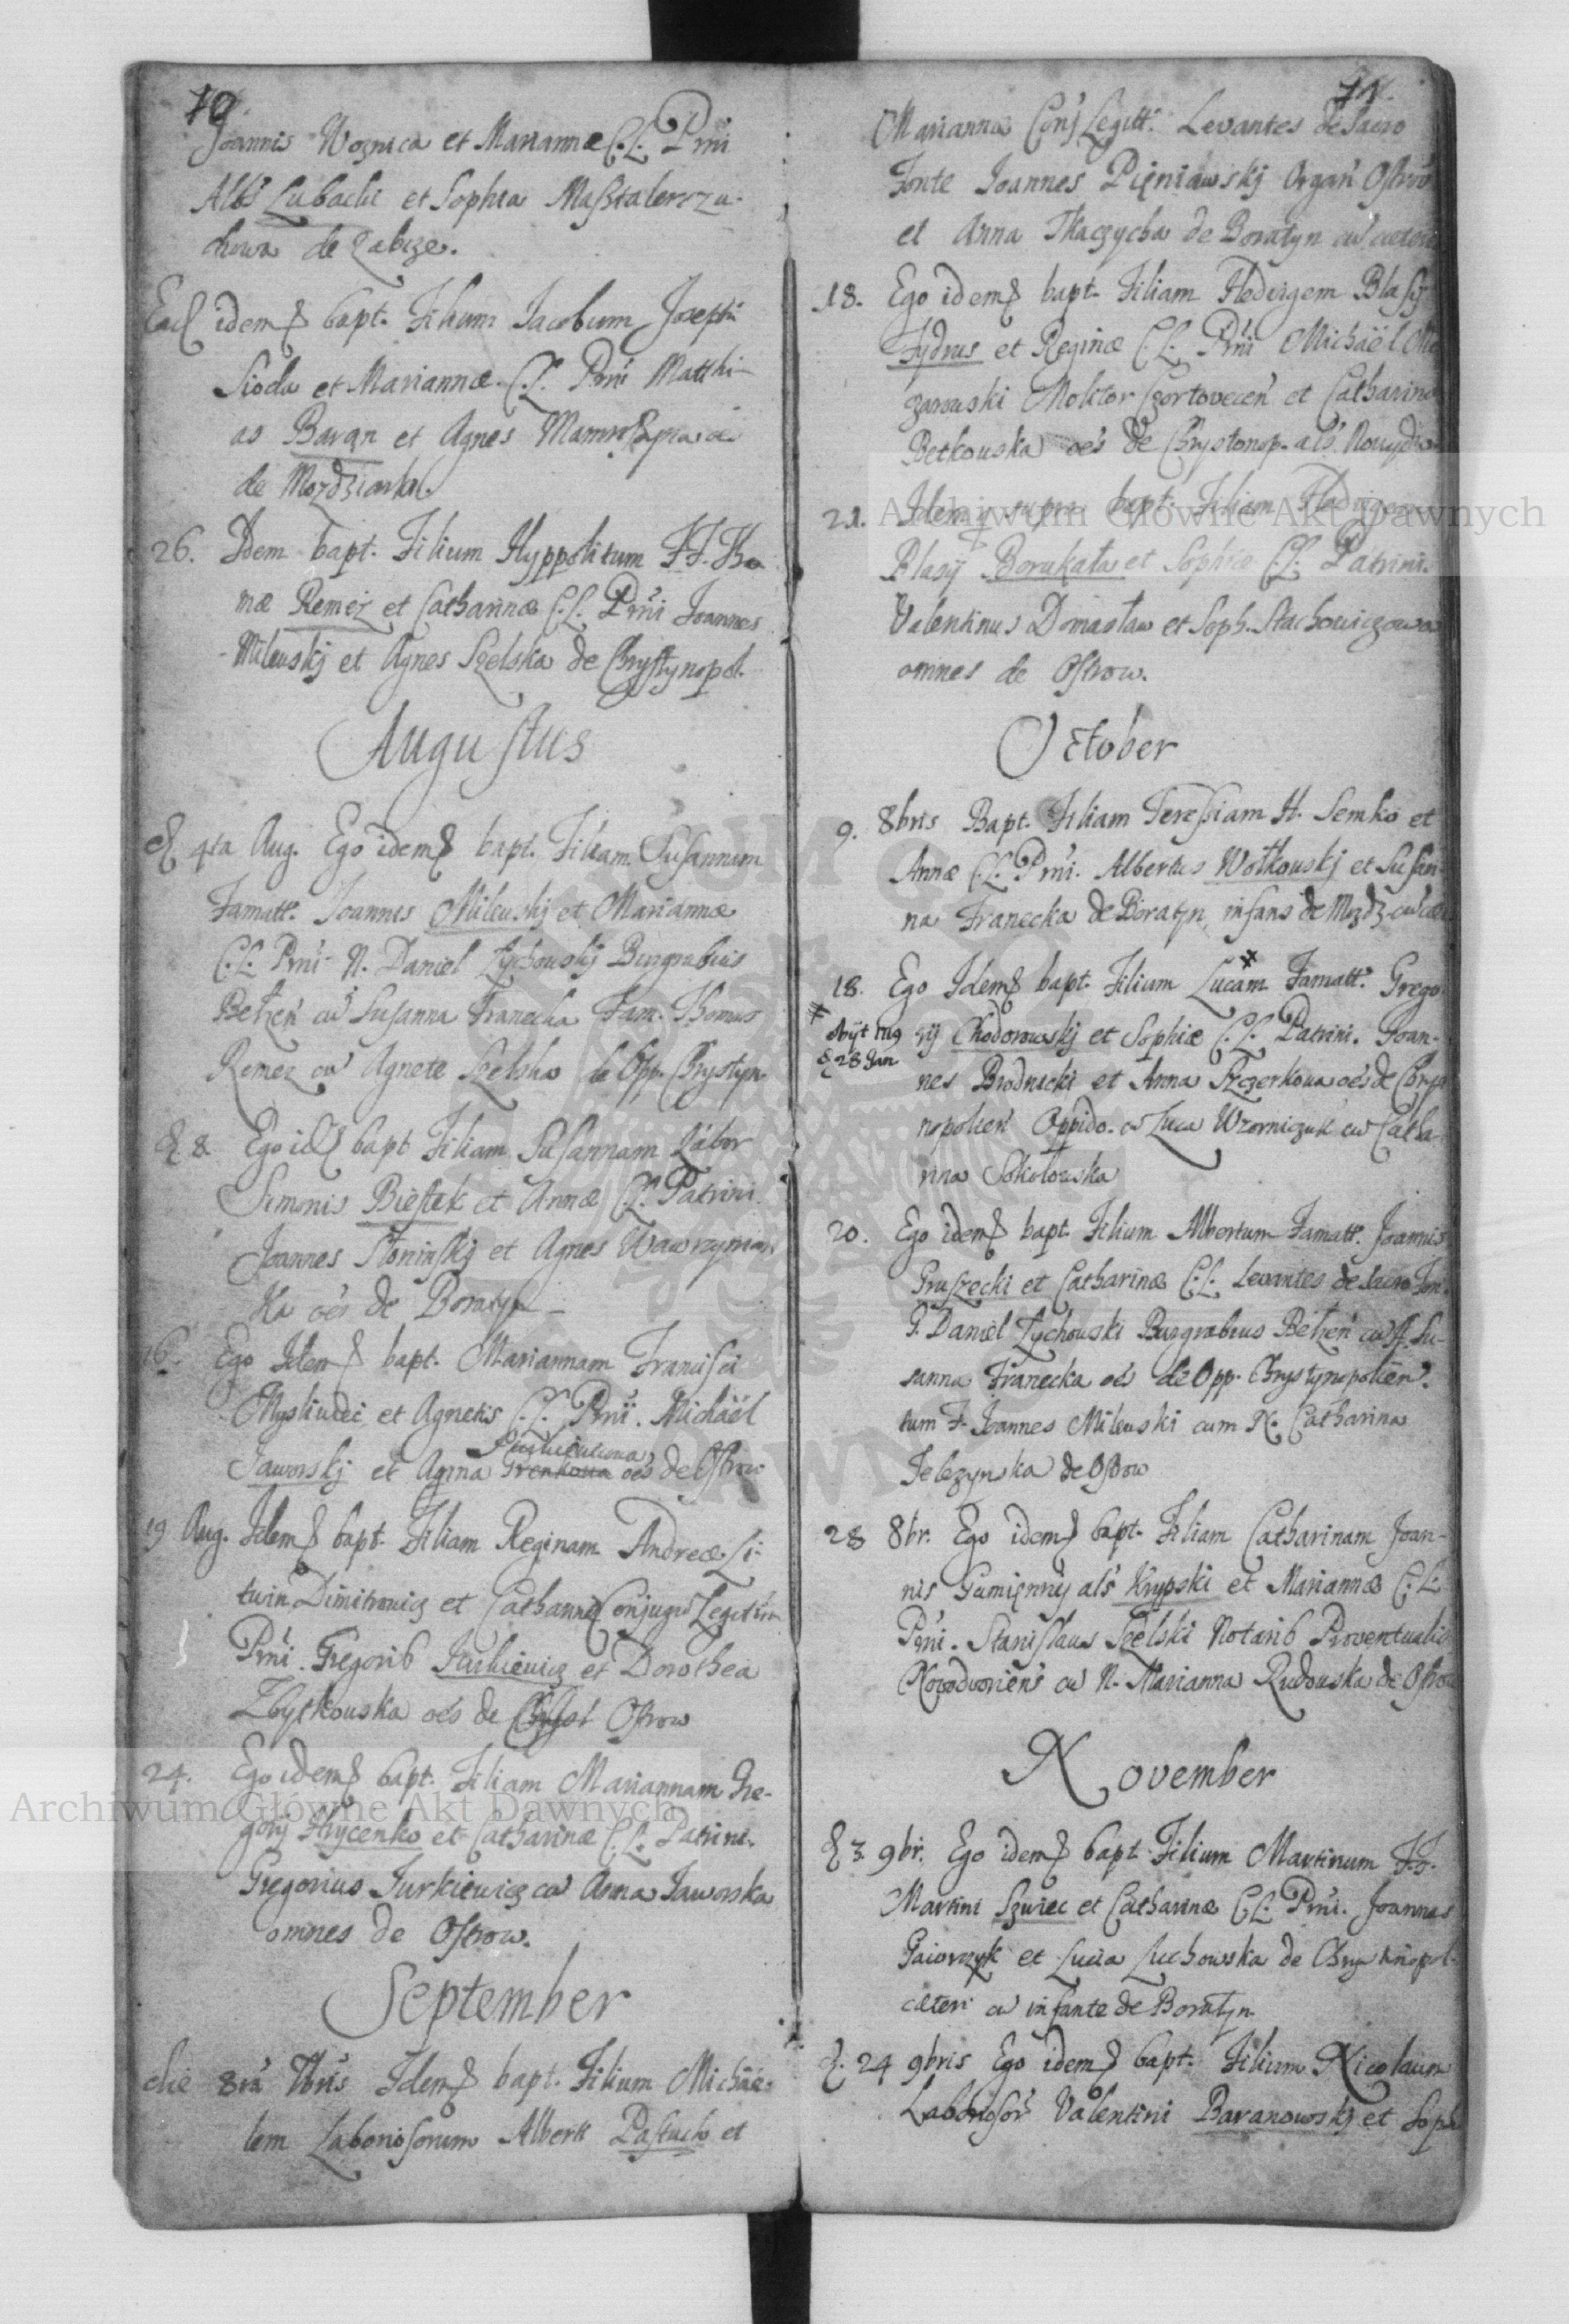 10
Joannis Woznica et Mariannæ C.L. Prni
Albs Lubachi et Sophia Maßtalerzu-
chowa de Zabcze.
Ead idem bapt. Filium Jacobum Josephi
Sioda et Mariannæ C.L. Prni Matthi-
as Baran et Agnes
de
26. Idem bapt. Filium Hyppolitum FF. Tho
mæ Remez et Catharinæ C.L. Prni Joannes
Milewskj et Agnes Szelska de Chrystynopol.
Augustus
D. 4ta Aug. Ego idem bapt. Filiam Susannam
Famatt. Joannis Milewskj et Mariannæ
C.L. Prni N. Daniel Zychowskj Burgrabius
Betzen cu Susanna Franecka Fam. Thomas
Remez cu Agnete Szelska de Opp. Chrystyn.
D 8 Ego id bapt Filiam Susannam Labor
Simonis Biestek et Annæ C.L. Patrini
Joannes Słoninskj et Agnes Wawrzynia
ka oes de Boratyn
16. Ego Idem bapt. Mariannam Francisci
Mysliudec et Agnetis C.L. Prni. Michäel
Jaworskj et Anna oes de Ostrow
19 Aug. Idem bapt. Filiam Reginam Andreæ Li-
twin Dimitrowicz et Catharinæ Conjugu Legitim
Prni. Gregorib Jurkiewicz et Dorothea
Zbytkouska oes de Chryst Ostrow
24. Ego idem bapt. Filiam Mariannam Gre-
gorij Hrycenko et Catharinæ C.L. Patrini.
Gregorius Jurkiewicz cu Anna Jaworska
omnes de Ostrow.
September
die 8va 7bris Idem bapt. Filium Michäe-
lem Laboriosorum Alberti Pastuch et
11
Marianna Conj Legitt. Levantes de Sacro
Fonte Joannes Pięniawskj Organ Ostro
et Anna Tkaczycha de Boratyn cu
18. Ego idem bapt. Filiam Hedvigem Blasij
Fydrus et Reginæ C.L. Prni Michäel
zarouski Molitor Czortovecen et Catharina
Betkouska oes de Chrystonop. als
21. Idem supra bapt. Filiam Hedvigem
Blasij Borukata et Sophiæ C.L. Patrini.
Valentinus Domasław et Soph. Stachowiczowa
omnes de Ostrow.
October
9. 8bris Bapt. Filiam Teressiam H. Semko et
Annæ C.L. Prni. Albertus Wołkouskj et Susan
na Franecka de Boratyn, infans de Mozdz
18. Ego Idem bapt. Filium Lucam Famatt. Grego
rij Chodorowskj et Sophiæ C.L. Patrini. Joan-
Obijt 1719
D 28 Jan
nes Brodnicki et Anna Szczerkoua oes de Chrys
nopolien Oppido. Luca Wzorniczuk cu Catha-
rina Sokołowska
20. Ego idem bapt. Filium Albertum Famatt. Joannis
Gruszecki et Catharinæ C.L. Levantes de Sacro Fon.
G. Daniel Zychouski Burgrabius Betzen cu Su-
sanna Franecka oes de Opp. Chrystynopolien.
tum F. Joannes Milewski cum N. Catharina
Jelczynska de Ostrow
28 8br. Ego idem bapt. Filiam Catharinam Joan-
nis Gumięnnij als Krypski et Mariannæ C.L.
Prni. Stanislaus Szelski Notarib Proventualis
Nowodworiens cu N. Marianna Rudouska de Ostrow
November
D 3. 9br. Ego idem bapt Filium Martinum F.J.
Martini Szwiec et Catharinæ C.L. Prni. Joannes
Gaiorczyk et Lucia Luchowska de Chrystinopol-
cæteri cu infante de Boratyn
D. 24 9bris Ego idem bapt. Filium Nicolaum
Laboriosor Valentini Baranowskj et Soph
Archiwum Główne Akt Dawnych
Archiwum Główne Akt Dawnych